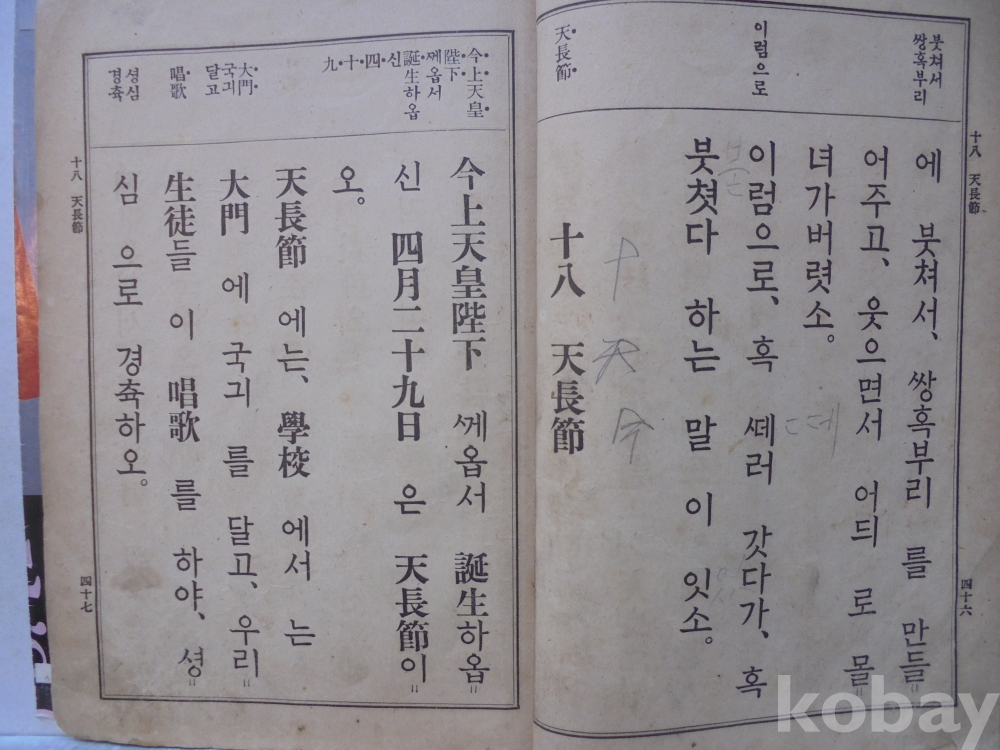 十八 天長節
붓쳐서
쌍혹부리
이럼으로
天長節
에 붓쳐서、쌍혹부리 를 만들〃
어주고、웃으면서 어듸 로 몰〃
녀가버렷소。
이럼으로、혹 ᄯᅦ러 갓다가、혹
붓쳣다 하는 말 이 잇소。
十八 天長節
十 天 今
四十六
今上天皇
陛下
ᄭᅦ옵서
誕生하옵
신四十九
大門
국긔
달고
唱歌
셩심
경츅
今上天皇陛下 ᄭᅦ옵서 誕生하옵〃
신 四月二十九日 은 天長節이〃
오。
天長節 에는、學校 에서 는
大門 에 국긔 를 달고、우리〃
生徒들 이 唱歌 를 하야、셩〃
심 으로 경츅하오。
十八 天長節
四十七
kobay